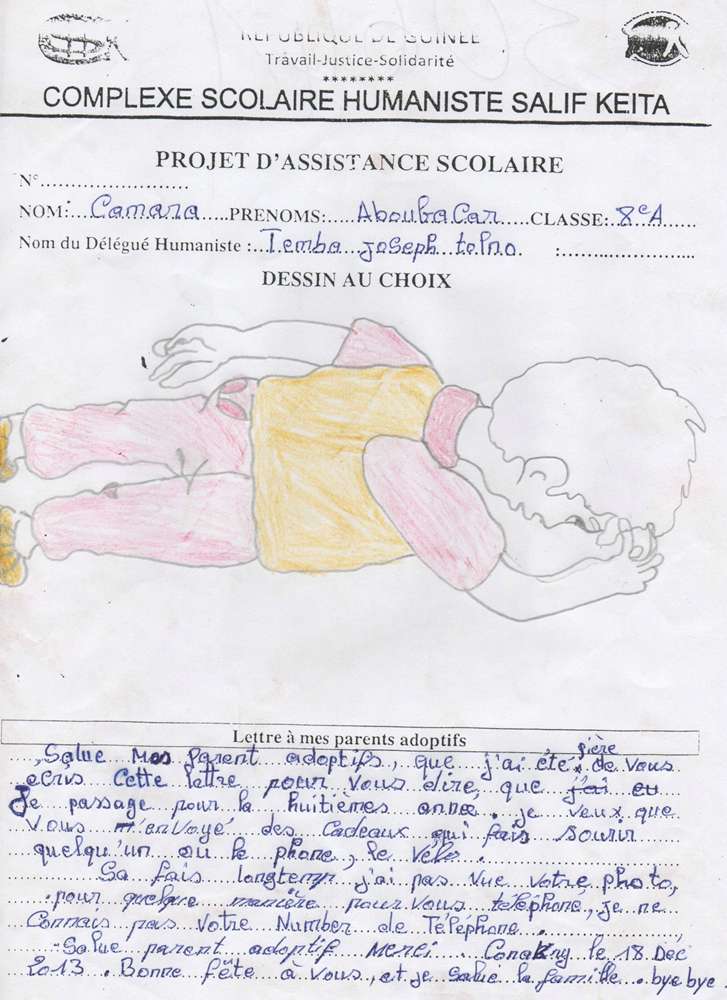 REPUBLIQUE DE GUINEE
Travail-Justice-Solidarité
********
COMPLEXE SCOLAIRE HUMANISTE SALIF KEITA
PROJET D'ASSISTANCE SCOLAIRE
N°........................
NOM:...Camara.....PRENOMS:....AboubaCar....CLASSE:..8eA......
Nom du Délégué Humaniste :..Temba joseph tolno. :.......................
DESSIN AU CHOIX
Lettre à mes parents adoptifs
Salue Mes Parent adoptifs, que j'ai été fière de vous
ecris Cette lettre pour vous dire, que j'ai eu
Je passage pour la huitièmes anné. je veux que
Vous m'envoyé des Cadeaux qui fais sourir
quelqu'un ou le phone, le vélo.
Sa fais longtemp j'ai pas vue votre photo,
pour quelque manière pour vous téléphone, je ne
Connais pas Votre Number de Téléphone.
Salue parent adoptif merci. Conakry le 18 Déc
2013. Bonne fête à vous, et je salue la famille. bye bye